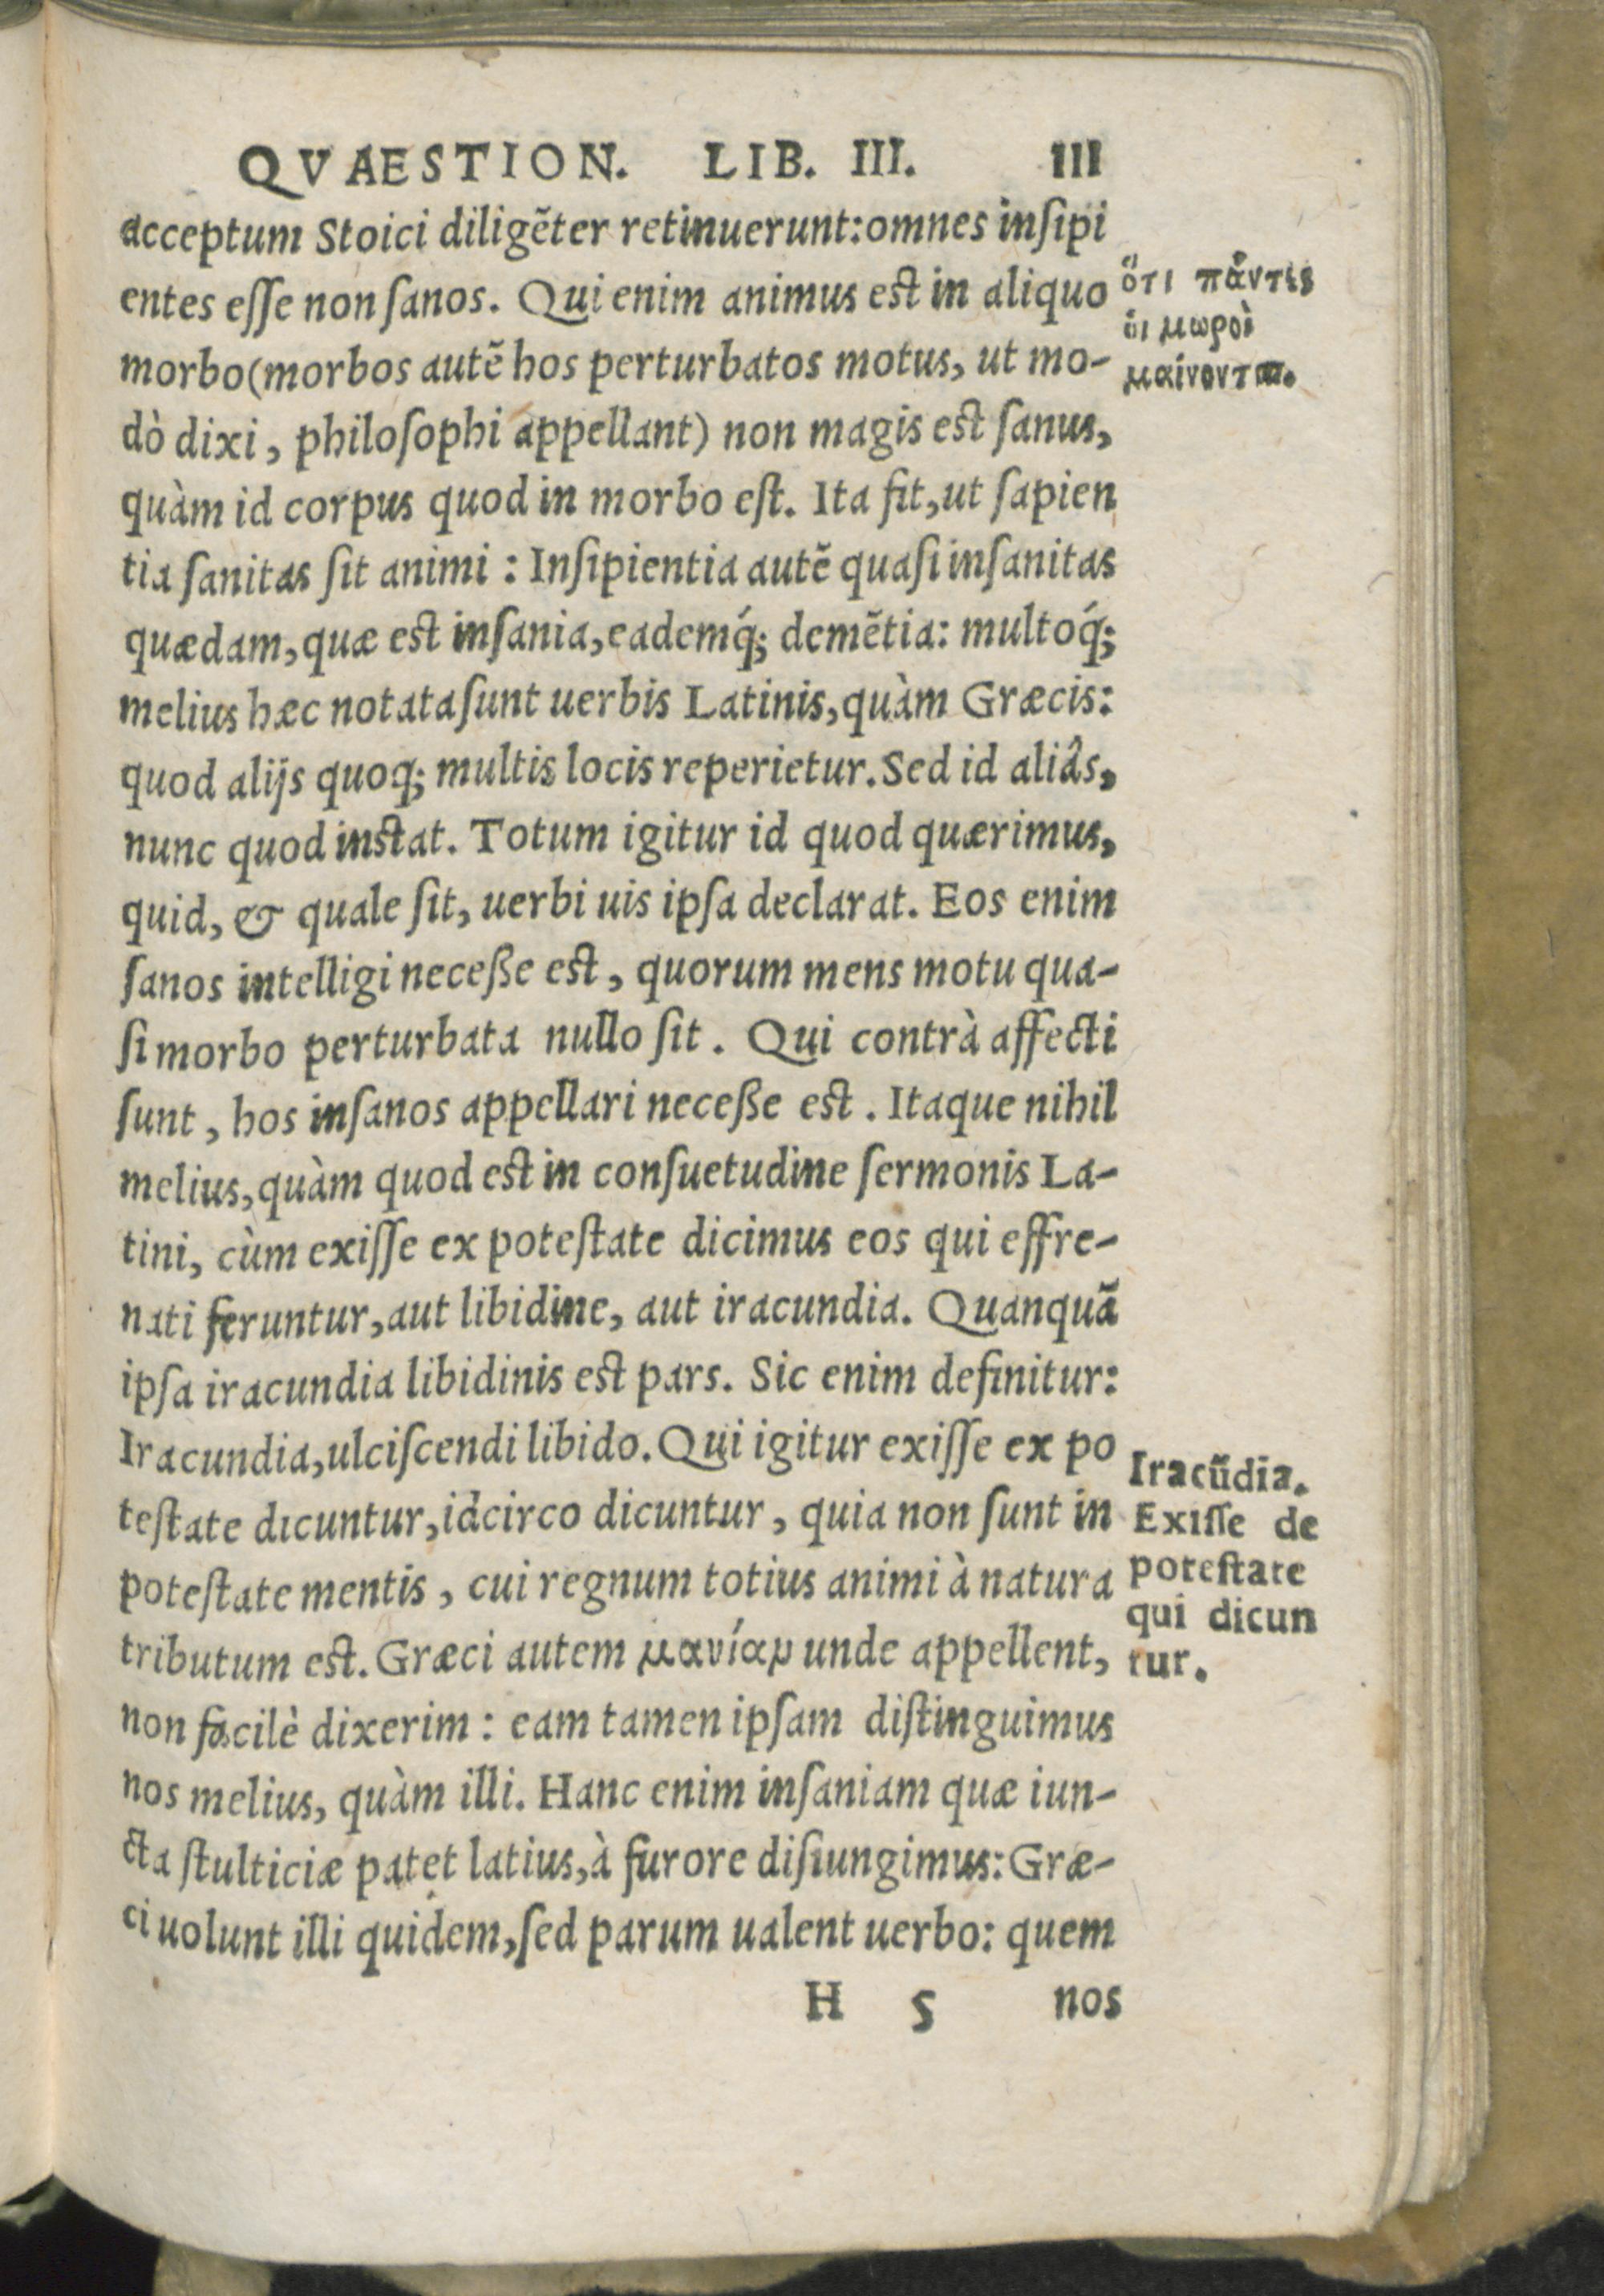 QVAESTION. LIB. III. 111
acceptum Stoici diligẽter retinuerunt: omnes inſipi
entes eſſe non ſanos. Qui enim animus est in aliquo
morbo (morbos autẽ hos perturbatos motus, ut mo-
dò dixi, philoſophi appellant) non magis est ſanus,
quàm id corpus quod in morbo eſt. Ita fit, ut ſapien
tia ſanitas ſit animi: Inſipientia autẽ quaſi inſanitas
quædam, quæ est inſania, eademq́; demẽtia: multoq́;
melius hæc notata ſunt uerbis Latinis, quàm Græcis:
quod alijs quoq; multis locis reperietur. Sed id aliâs,
nunc quod instat. Totum igitur id quod quærimus,
quid, & quale ſit, uerbi uis ipſa declarat. Eos enim
ſanos intelligi neceße est, quorum mens motu qua-
ſi morbo perturbata nullo ſit. Qui contrà affecti
ſunt, hos inſanos appellari neceße est. Itaque nihil
melius, quàm quod est in conſuetudine ſermonis La-
tini, cùm exiſſe ex poteſtate dicimus eos qui effre-
nati feruntur, aut libidine, aut iracundia. Quanquã
ipſa iracundia libidinis est pars. Sic enim definitur:
Iracundia, ulciſcendi libido. Qui igitur exiſſe ex po
teſtate dicuntur, idcirco dicuntur, quia non ſunt in
poteſtate mentis, cui regnum totius animi à natura
tributum est. Græci autem μανίαν unde appellent,
non facilè dixerim: eam tamen ipſam diſtinguimus
nos melius, quàm illi. Hanc enim inſaniam quæ iun-
cta ſtulticiæ patet latius, à furore diſiungimus: Græ-
ci uolunt illi quidem, ſed parum ualent uerbo: quem
H 5 nos
ὅτι πᾶντες
ὁι μωροὶ
μαίνονται.
Iracũdia.
Exiſſe de
poteſtate
qui dicun
tur.